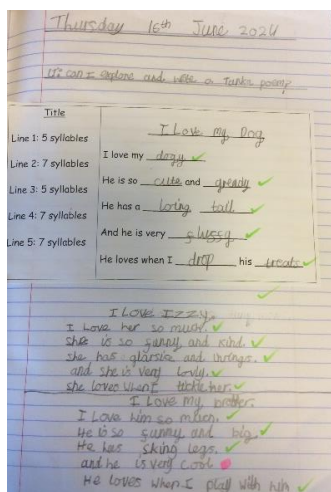 Thursday 16th June 2024
LI: can I explore and write a Tanka poem?
Title
Line 1: 5 syllables
Line 2: 7 syllables
Line 3: 5 syllables
Line 4: 7 syllables
Line 5: 7 syllables
I Love my Dog
I love my dogy
He is so cute and greedy
He has a loring tall
And he is very
He loves when I drop his treats
I Love Izzy
I Love her so much.
she is so funny and kind.
she has glarsis and
and she is very lovly.
she loves when I tickle her.
I Love my brother.
I Love him so much.
He is so funny and big.
He has sking legs.
and he is very cool
He loves when I play with him